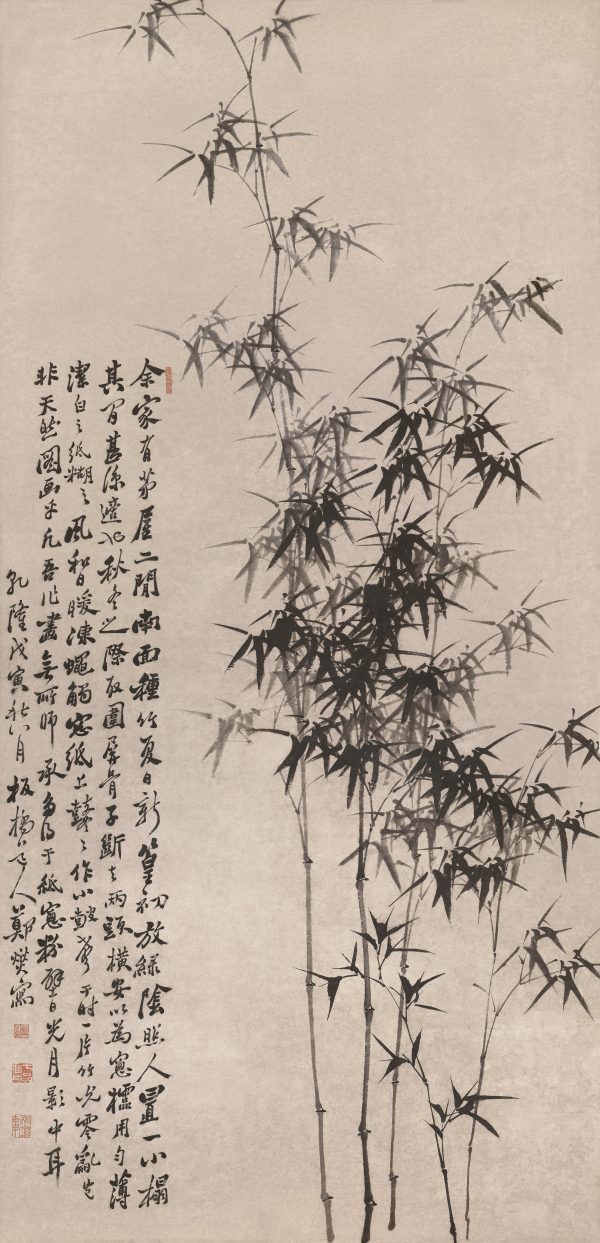 余家有茅屋二間南面種竹夏日新篁初放綠陰照人置一小榻
其間甚涼適也秋冬之際取圍屏骨子斷去兩頭橫安以為窻櫺用勻薄
潔白之紙糊之風和日暖凍蠅觸窻紙上鼕鼕作小鼓聲于時一片竹影零亂豈
非天然圖畫乎凡吾作畫無所師承多得于紙窻粉壁日光月影中耳
乾隆戊寅秋八月板橋道人鄭燮寫